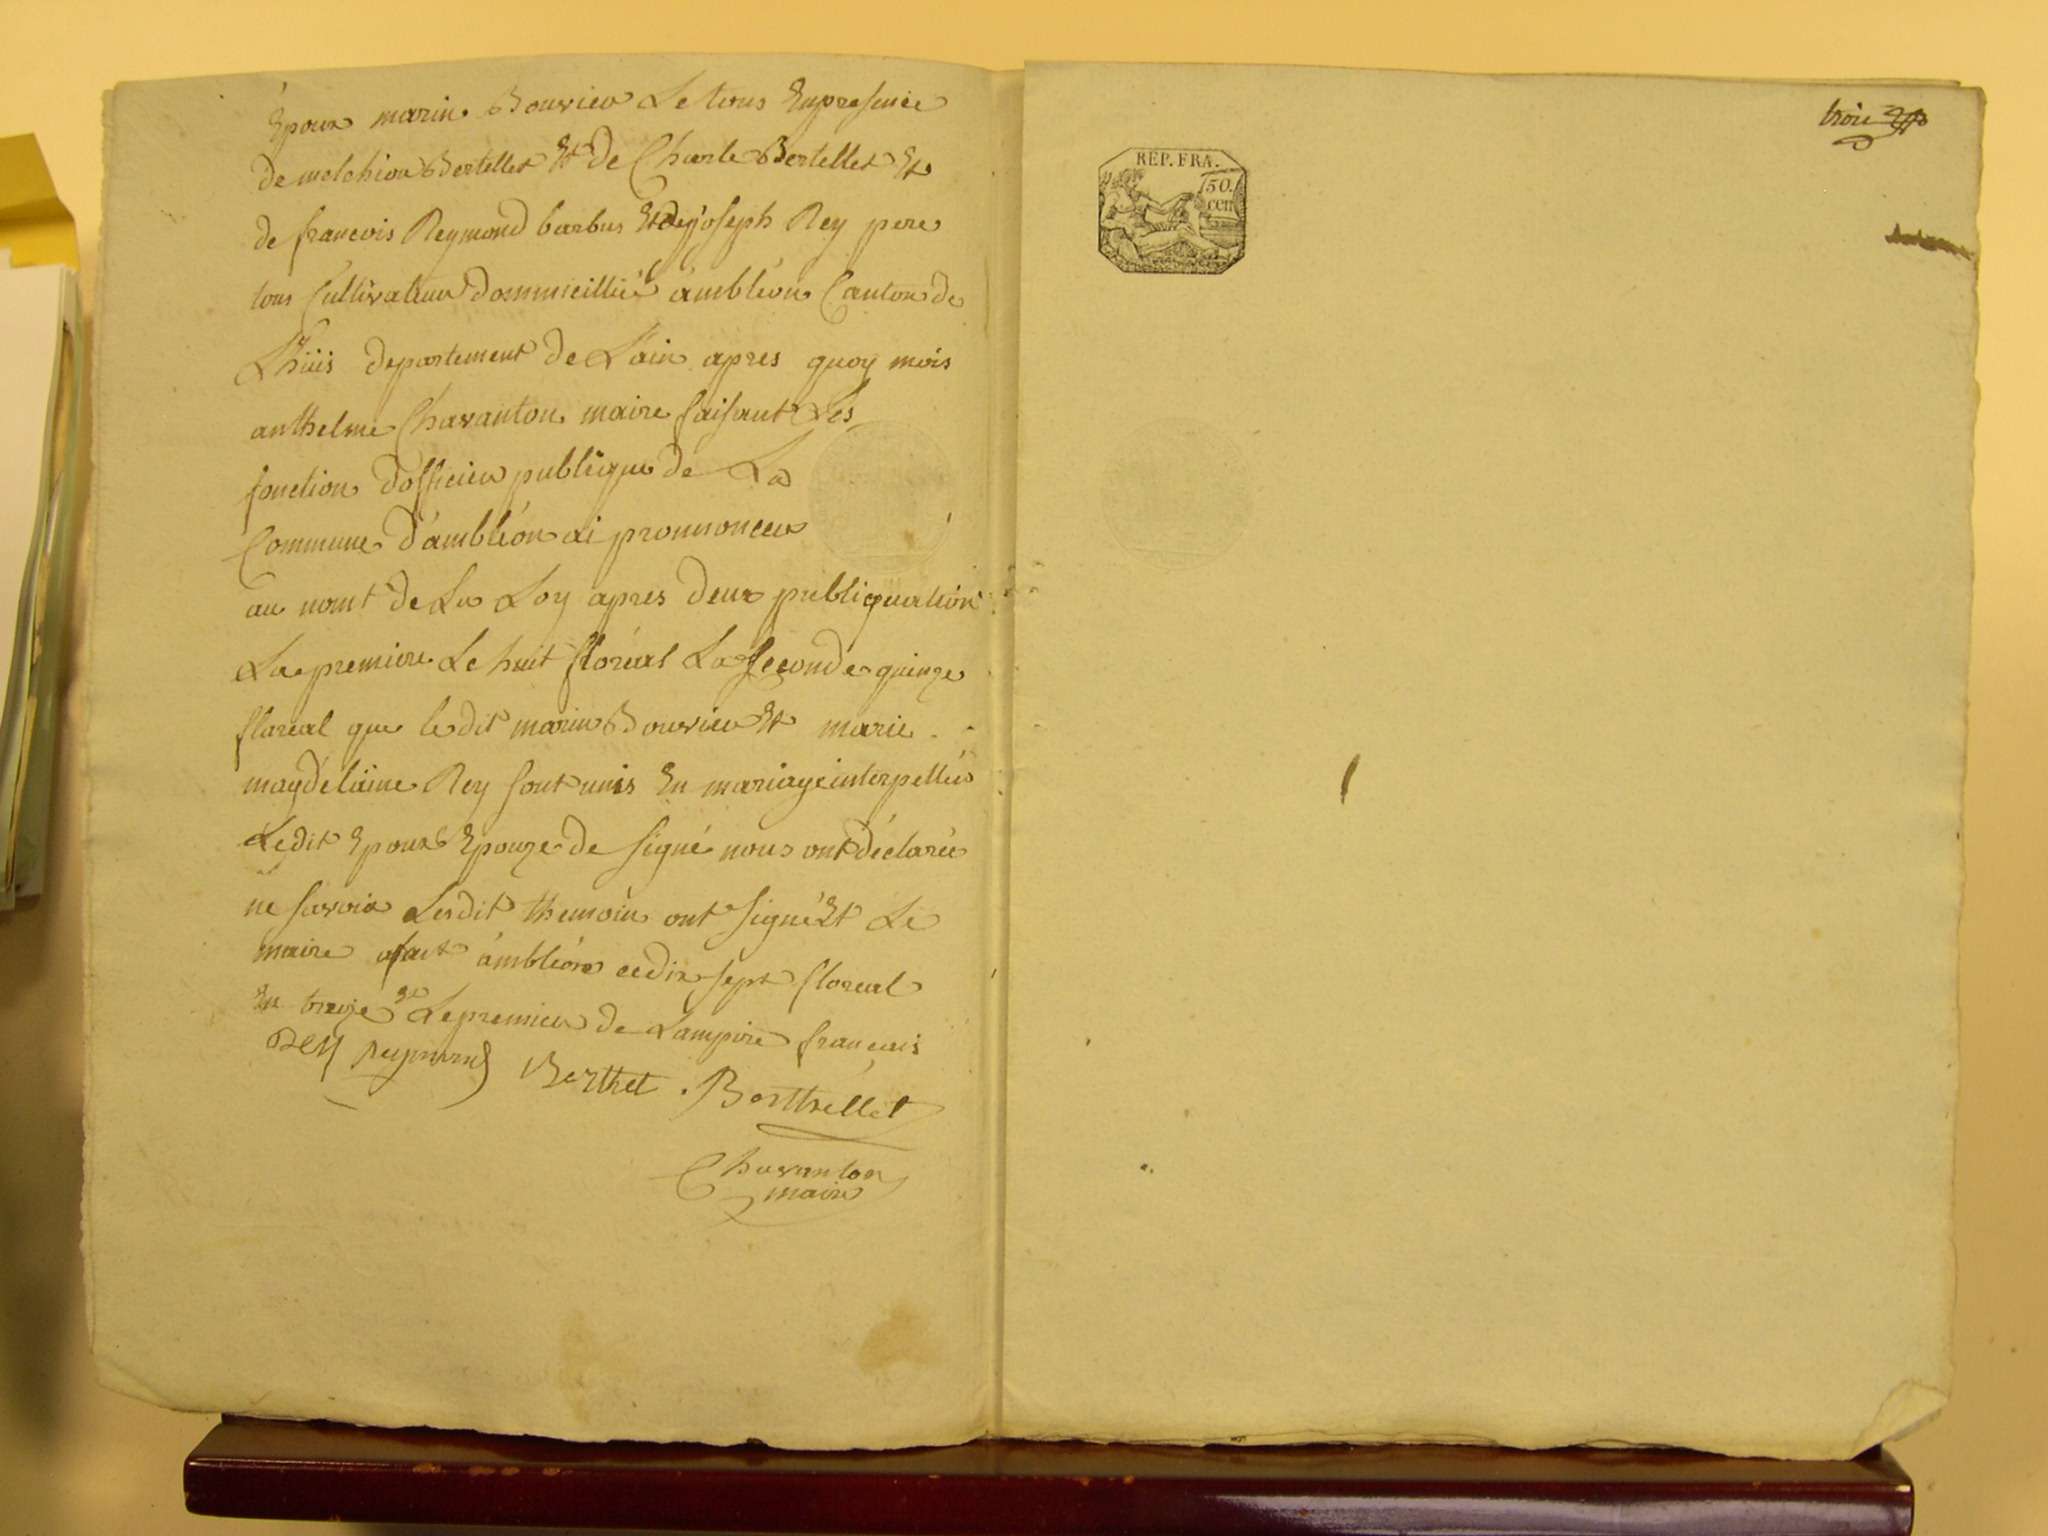 Epoux marin Bouvier Le tous En presence
de melchior Bertellet Et de Charle Bertellet Et
de francois Reymond barbus Et de joseph Rey pere
tous Cultivateur dommicilliée ambléon Canton de
Lhuis departement de Lain apres quoy mois
anthelme Chavanton maire faisant Les
fonction dofficier publique de La
Commune d'ambléon ai pronnoncer
au nomt de La Loy apres deux publiquation
La premiere Le huit floréal La seconde quinze
flaréal que le dit marin Bouvier Et marie
magdelaine Rey sont unis En mariage interpellés
Ledit Epoux Epouze de signé nous ont déclarée
ne savoir Lesdit themoin ont signé Et Le
maire afait ambléon ce dix sept floreal
En treize Et Le premier de Lampire francais
Rey Reymond Berthet Berthellet
Chavanton
maire
troie
REP. FRA.
50.
cen